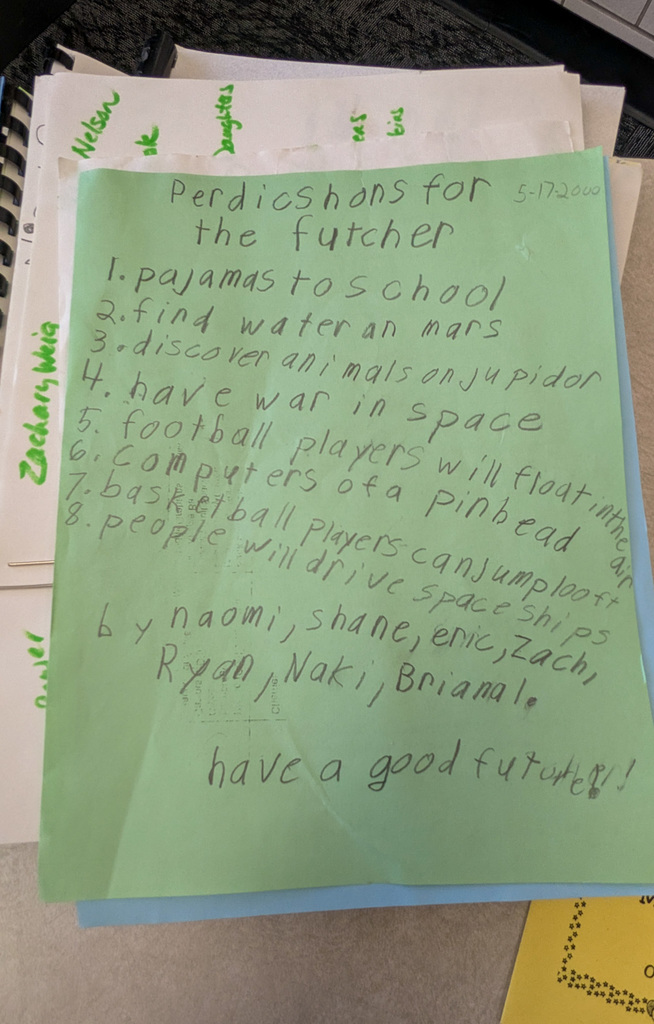 Nelson
Daughtes
Zachary Weig
Perdicshons for
5-17-2000
the futcher
1. pajamas to school
2. find water an mars
3. discover animals on jupidor
4. have war in space
5. football players will float in the air
6. computers of a pinhead
7. basketball players can jump 100 ft
8. people will drive space ships
by naomi, shane, eric, Zach,
Ryan, Naki, Brianal.
have a good futcher!!